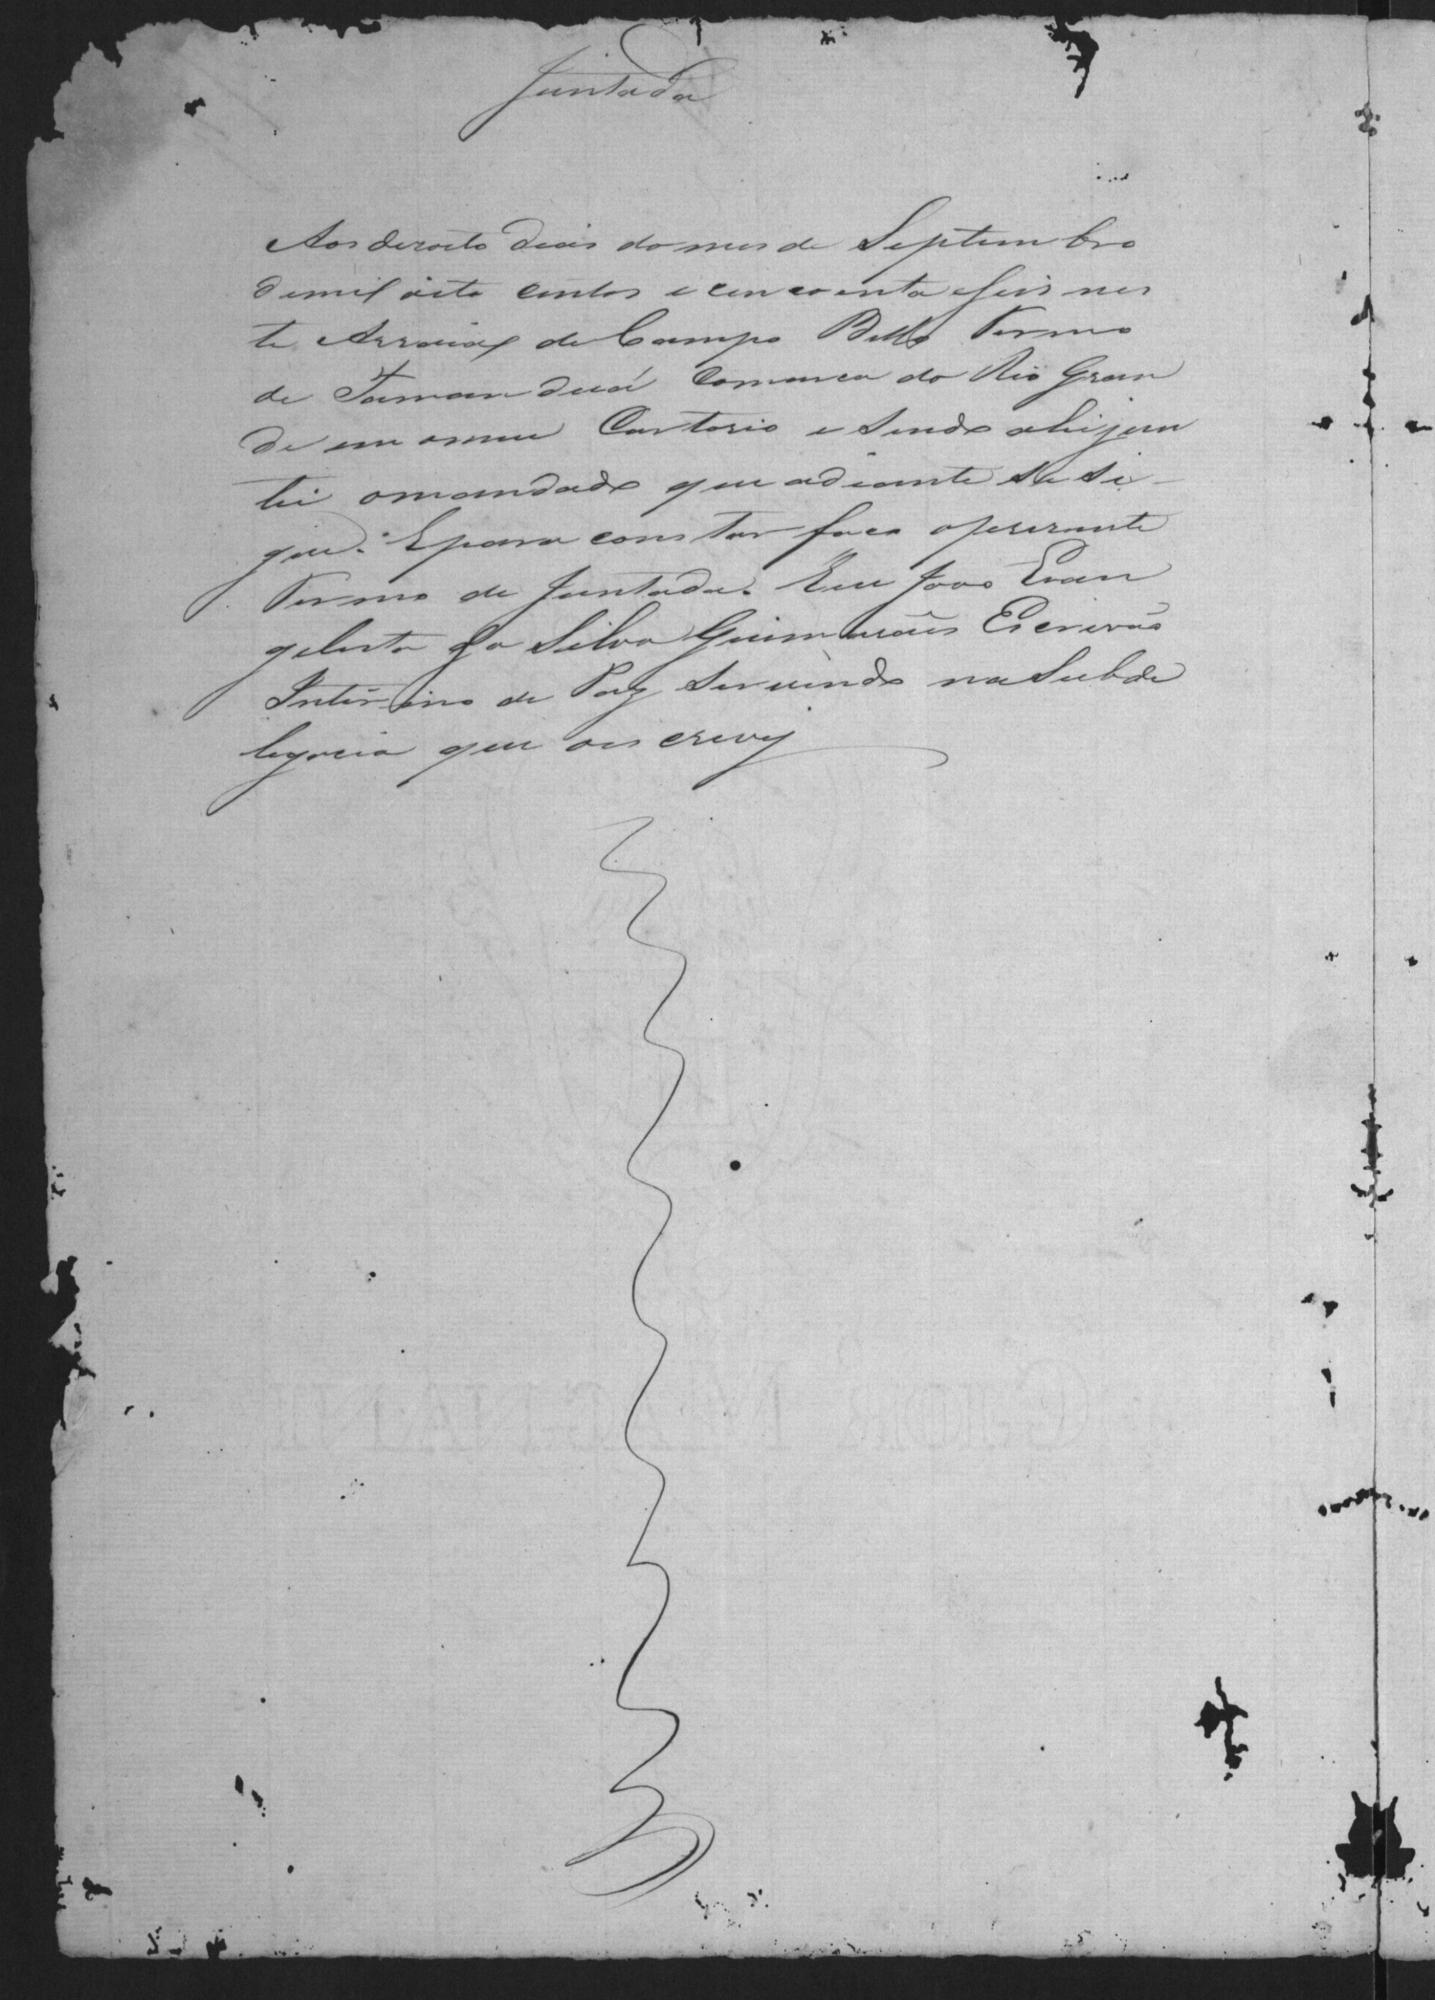 Juntada
Aos deroito dias do mes de Septembro
de mil oito centos e cencoenta e seis nes
te Arraial de Campo Bello Termo
de Tamanduá Comarca do Rio Gran
de em o meu Cartorio e sendo ahi jun
tei o mandado que adiante se se-
gue. E para constar faco o prezente
Termo de Juntada. Eu Joao Evan
gelista da Silva Guimarães Escrivão
Interino de Paz servindo na Subde
legacia que o escrevy
GIOR MAGNANI